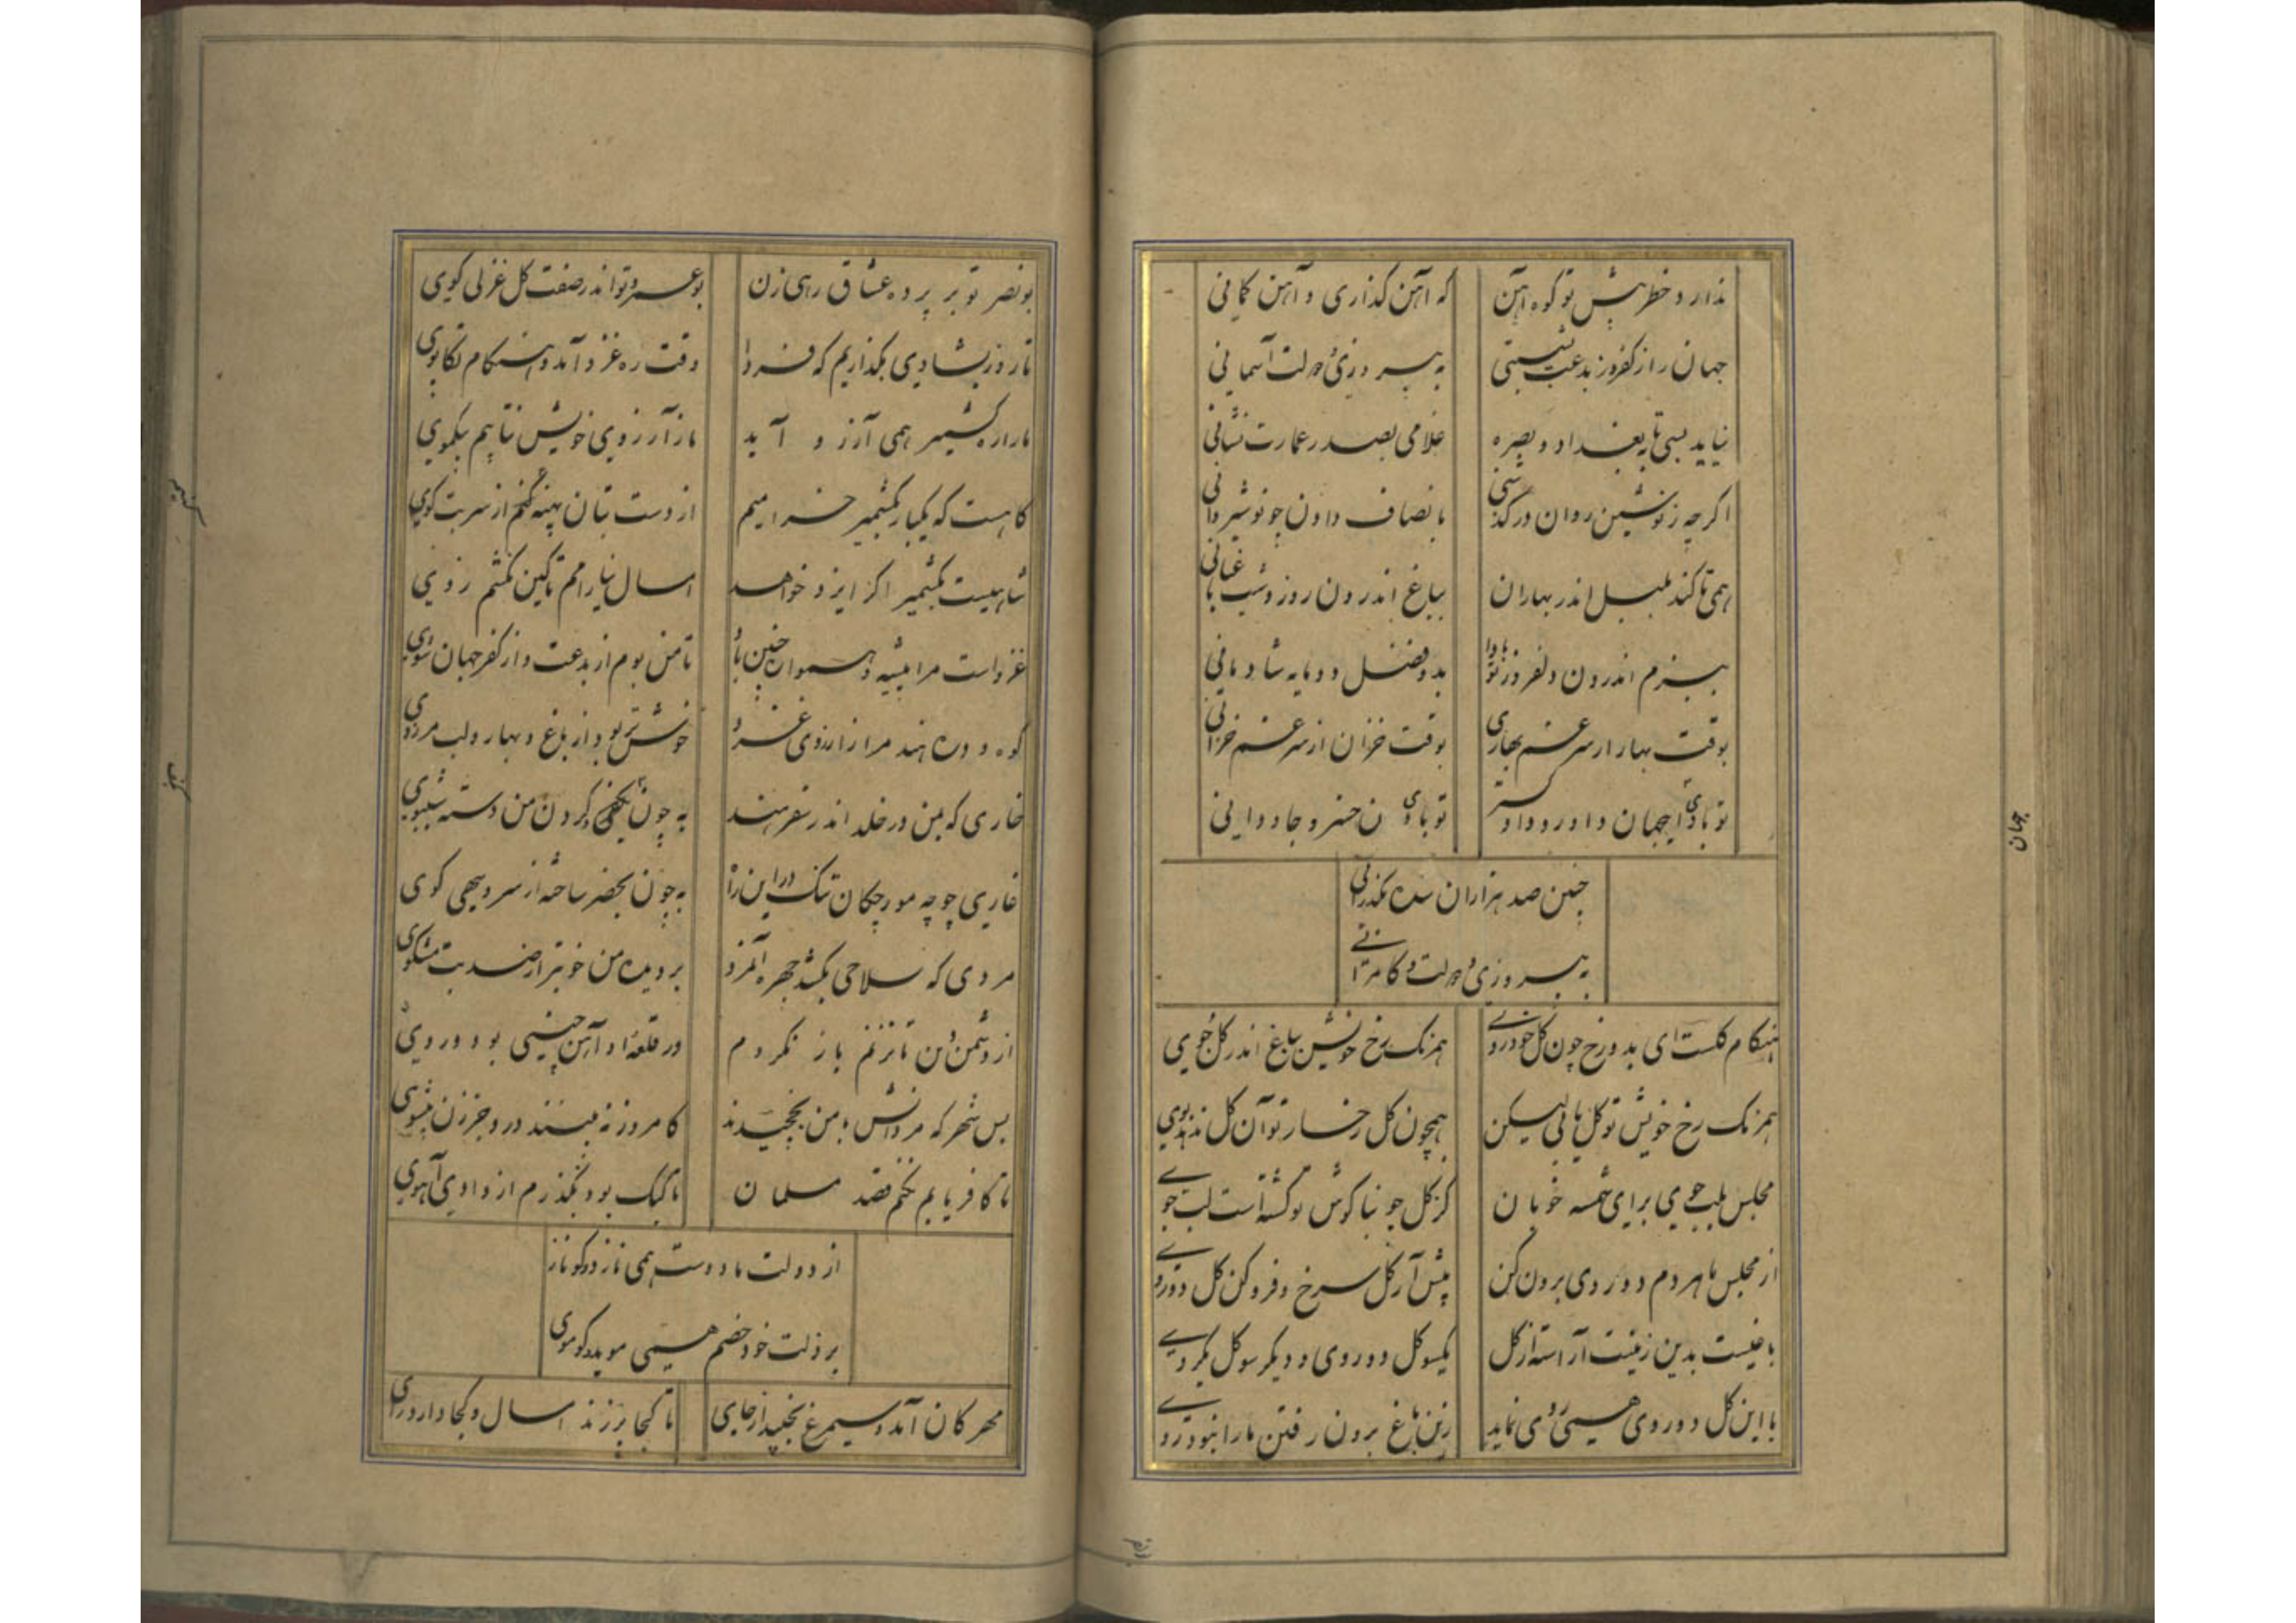 ندارد خطر پیش تو کوه آهن که آهن گذاری و آهن کمانی
جهان را ز کفر و ز بدعت بشستی به پیروزی و دولت آسمانی
نیاید بسی تا به بغداد و بصره غلامی بصدر عمارت نشانی
اگر چه ز نوشین روان درگذشتی بانصاف دادن چو نوشیروانی
همی تا کند بلبل اندر بهاران بباغ اندرون روز و شب باغبانی
ببزم اندرون دلفروز تو بادا بدو فصل دو مایه شادمانی
بوقت بهار از سر غم بهاری بوقت خزان از سر غم خزانی
تو بادی جهان داور و دادگستر تو بادی خسرو جاودانی
چنین صد هزاران سده بگذرانی
به پیروزی و دولت و کامرانی
هنگام گلست ای بدو رخ چون گل خودروی همرنگ رخ خویش بباغ اندر گل جوی
همرنگ رخ خویش تو گل یابی لیکن همچون گل رخسار تو آن گل ندهد بوی
مجلس بلب جوی برای شمسه خوبان کز گل چو بناگوش تو گشته است لب جوی
از مجلس ما مردم دو روی برون کن پیش آر گل سرخ و فرو کن گل دوروی
باغیست بدین زینت آراسته از گل یکسو گل دو روی و دیگر سو گل یکروی
با این گل دو روی همی روی نماید زین باغ برون رفتن ما را نبود روی
بونصر تو بر پرده عشاق رهی زن بوعمرو تو اندر صفت گل غزلی گوی
تا روز بشادی بگذاریم که فردا وقت ره غزو آمد و هنگام تکاپوی
ما را ره کشمیر همی آرزو آید ما ز آرزوی خویش نتابیم بیکموی
گاهست که یکبار بکشمیر خرامیم از دست بتان پهنه کنم از سر بت گوی
شاهیست بکشمیر اگر ایزد خواهد امسال نیارامم تا کین نکشم زوی
غزو است مرا پیشه و همواره چنین باد تا من بوم از بدعت و از کفر جهان شوی
کوه و دره هند مرا ز آرزوی غزو خوشتر بود از باغ و بهار و لب مرزوی
خاری که بمن در خلد اندر سفر هند به چون بکف گردون من دسته شببوی
غاری چو چه مورچگان تنگ در این راه به چون بحضر ساخته از سرو سهی کوی
مردی که سلاحی بکشد چهره آنمرد بر دیده من خوبتر از صد بت مشکوی
از دشمن دین تا نزنم باز نگردم ور قلعه او آهن چینی بود و روی
بس شهر که مردانش با من بچخیدند کامروز نبینند درو جز زن بیشوی
تا کافر یابم نکنم قصد مسلمان تا کبک بود نگذرم از وادی آهوی
از دولت ما دوست همی نازد گو ناز
بر ذلت خود خصم همی موید گو موی
مهرکان آمد و سیمرغ بجنبید از جای تا کجا پر زند امسال و کجا دارد رای
جهان